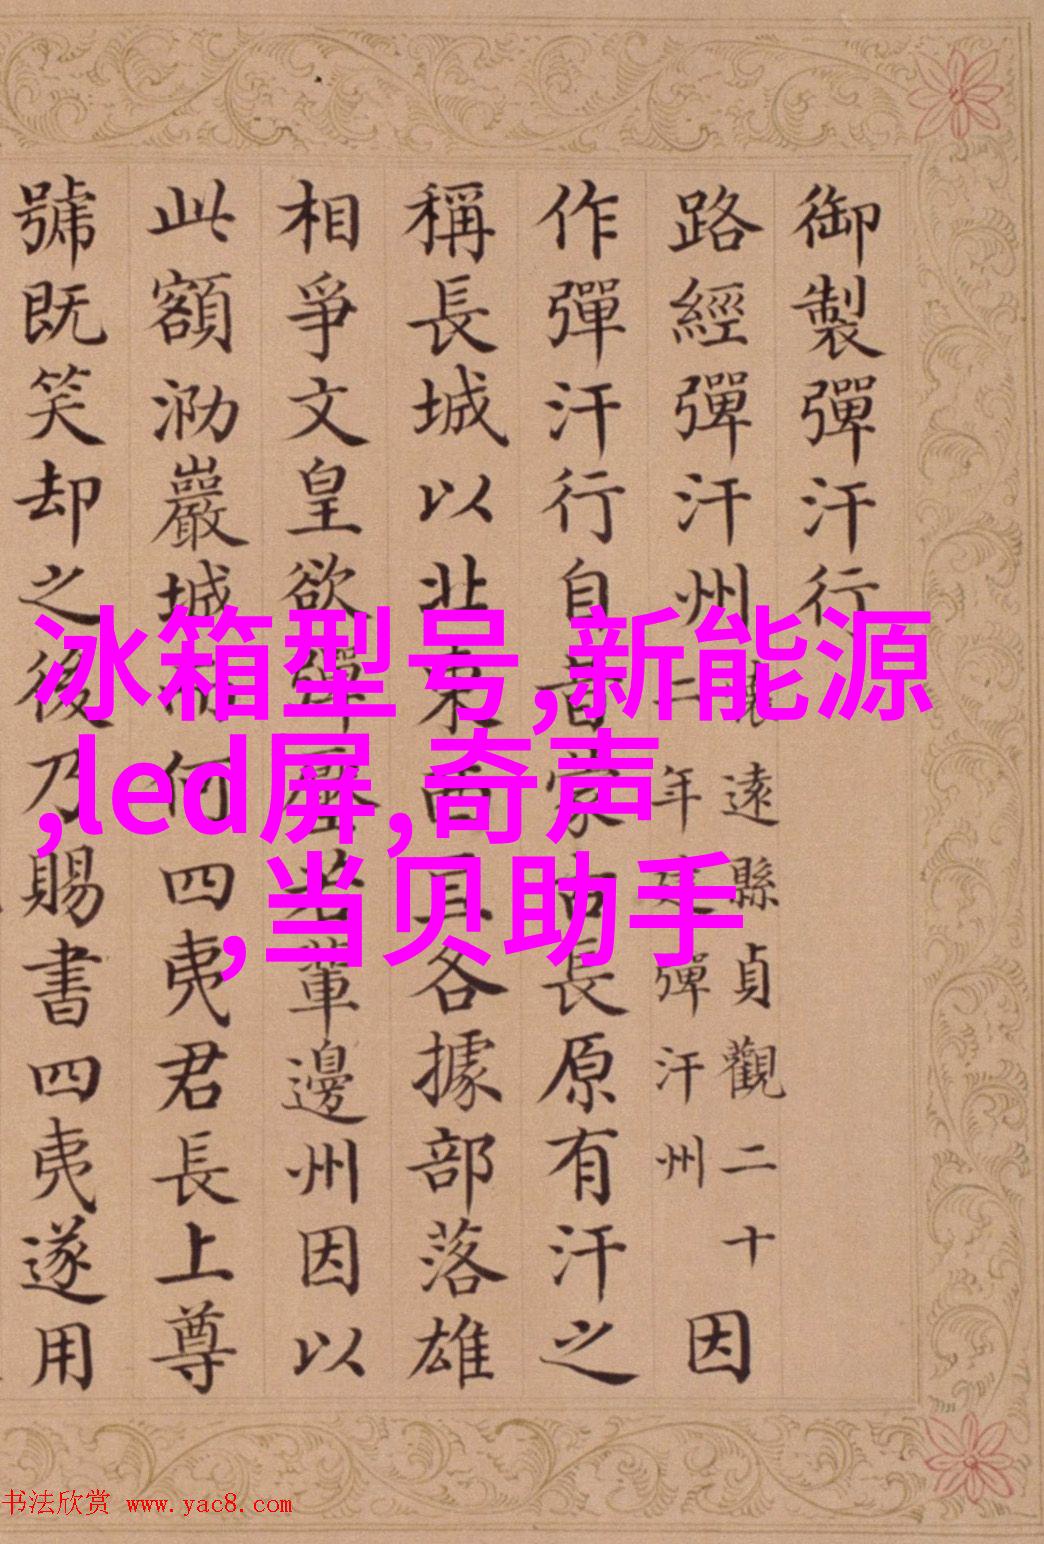 御製彈汗行
路經彈汗州
遠縣貞觀二十
二年建彈汗州
因
作彈汗行自昔蒙古長原有汗之
稱長城以北東西且各據部落雄
相爭文皇欲彈壓若輩邊州因以
此額泐巖城何四夷君長上尊
號既笑却之後乃賜書四夷遂用
冰箱型号,新能源
,led屏,奇声
,当贝助手
书法欣赏 www.yac8.com